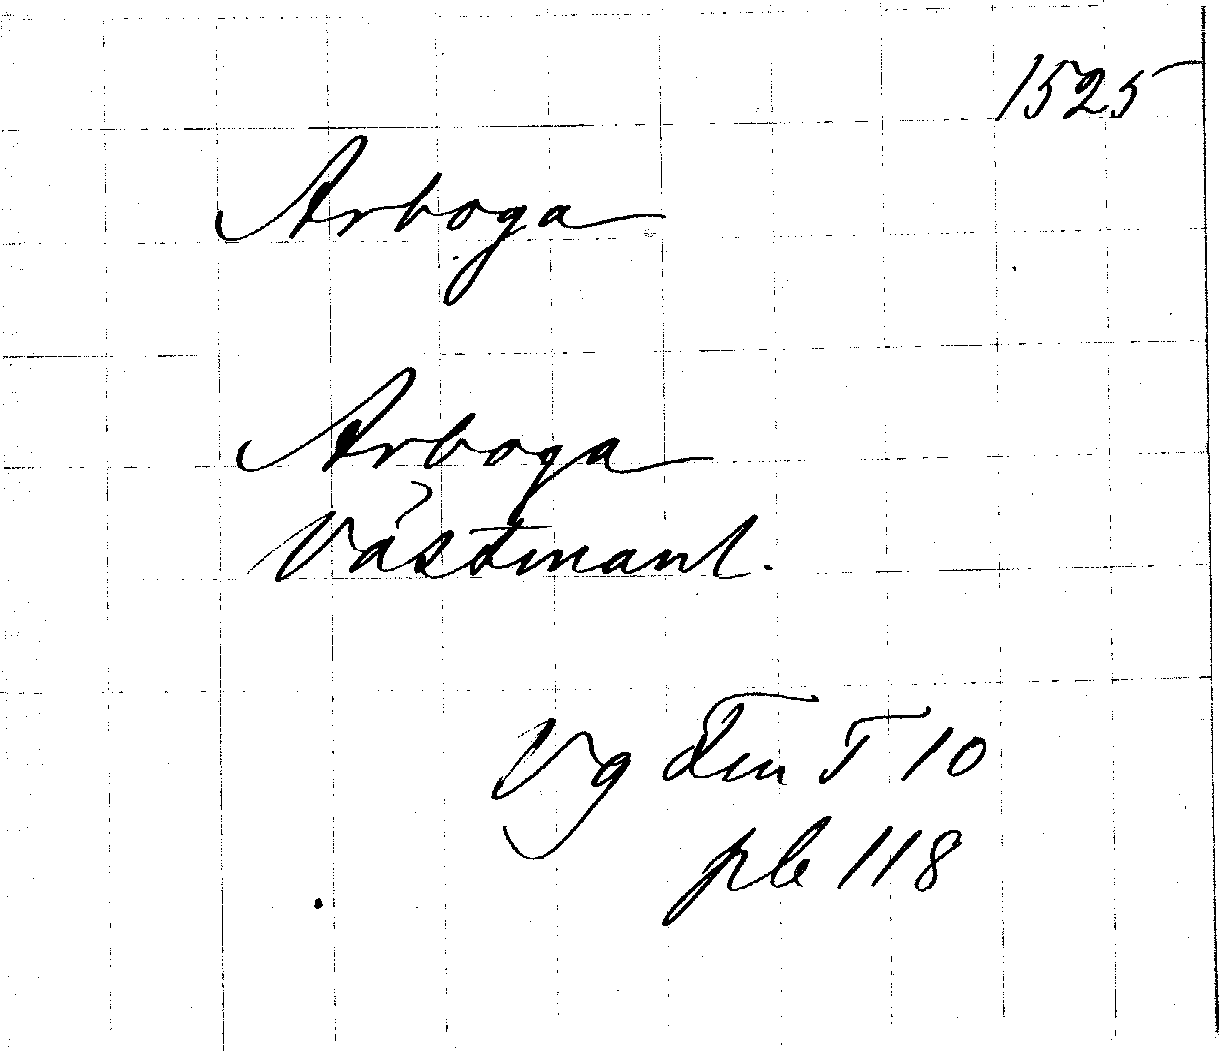 1525
Arboga
Arboga
Västmanl.
Vg dim T 10
ple 118